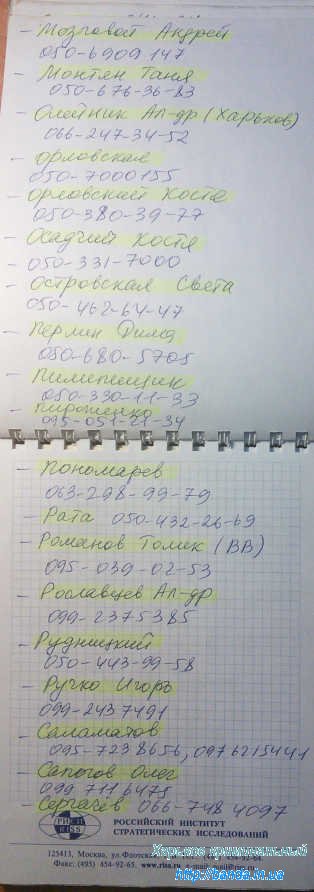 - Мозговой Андрей
050-6909147
- Монтян Таня
050-676-36-83
- Олейник Ал-др (Харьков)
066-247-34-52
- Орловская
050-7000155
- Орловский Костя
050-380-39-77
- Осадчий Костя
- 050-331-7000
- Островская Света
050-462-64-47
- Перлин Дима
050-680-5705
- Пилипишин
050-330-11-33
- Пироженко
095-051-21-34
- Пономарев
063-298-99-79
- Рата 050-432-26-69
- Романов Томик (ВВ)
095-039-02-53
- Рославцев Ал-др
099-2375385
- Рудницкий
050-443-99-58
- Ручко Игорь
099-2437491
- Саламатов
095-7238656, 0976215441
- Сапогов Олег
099 711 6475
- Сергачев 066-748 4097
РИСИ
RISS
РОССИЙСКИЙ ИНСТИТУТ
СТРАТЕГИЧЕСКИХ ИССЛЕДОВАНИЙ
125413, Москва, ул.Флотская
Факс: (495) 454-92-65. www.riss.ru
Харьков криминальный